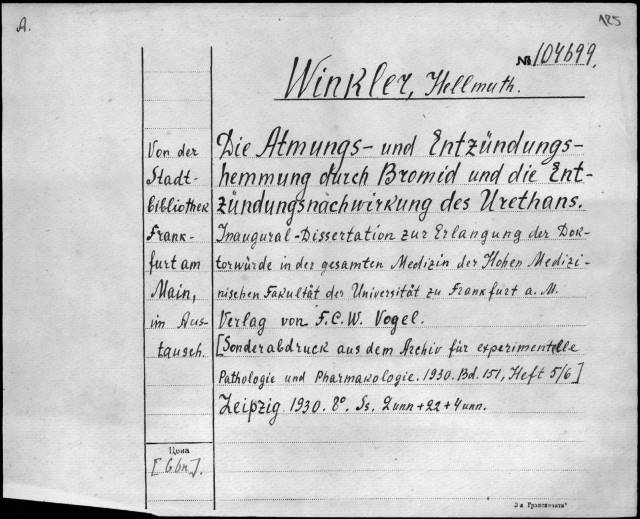 A.
125
№ 104699.
Winkler, Hellmuth.
Von der
Stadt-
bibliothek
Frank-
furt am
Main,
im Aus-
tausch.
Die Atmungs- und Entzündungs-
hemmung durch Bromid und die Ent-
zündungsnachwirkung des Urethans.
Inaugural-Dissertation zur Erlangung der Dok-
torwürde in der gesamten Medizin der Hohen Medizi-
nischen Fakultät der Universität zu Frankfurt a. M.
Verlag von F.C.W. Vogel.
[Sonderabdruck aus dem Archiv für experimentelle
Pathologie und Pharmakologie. 1930. Bd. 151, Heft 5/6]
Leipzig 1930. 8°. Ss. 2unn+22+4unn.
Цена